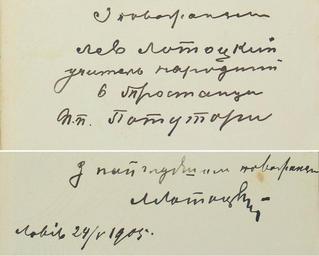 З поважанєм
Лев Лотоцкий
учитель народний
в Тростанци
п.п. Потутори
З найглубшим поважанєм
ЛЛотоцкий
Львів 24/V 1905.